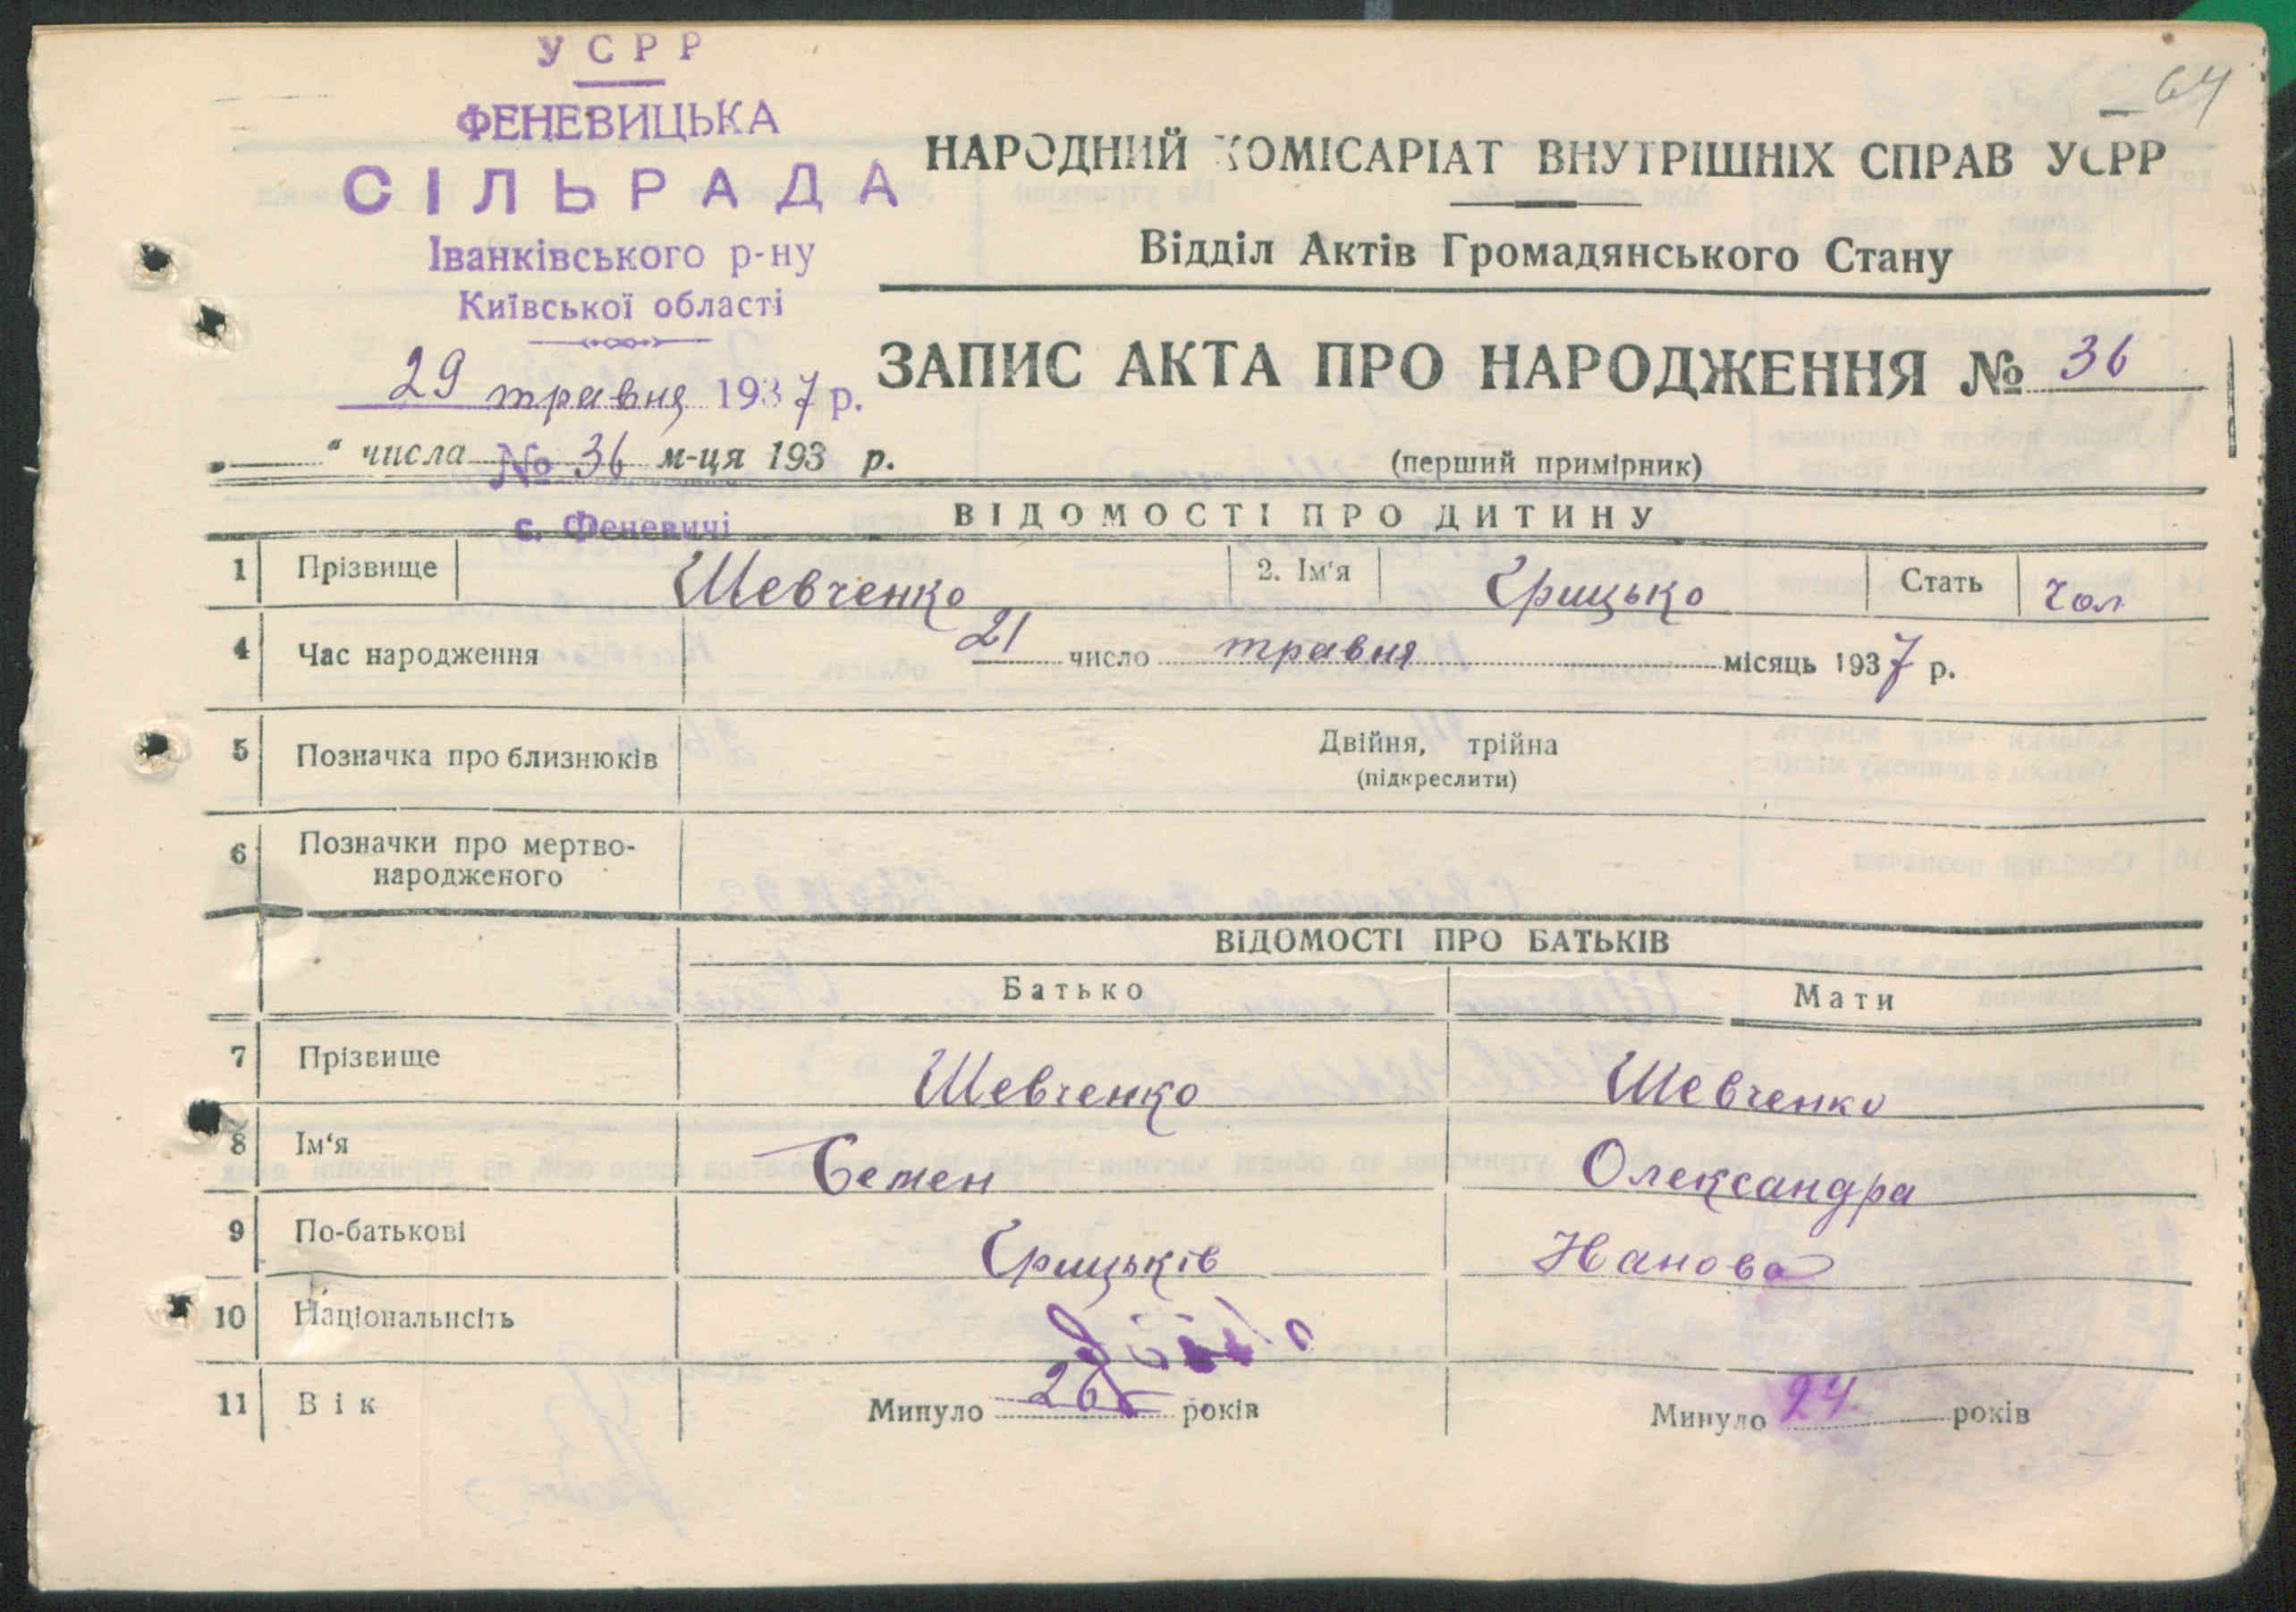 64
УСРР
ФЕНЕВИЦЬКА
СІЛЬРАДА
Іванківського р-ну
Київської області
29 травня 1937 р.
" числа № 36 м-ця 193 р.
с. Феневичі
НАРОДНИЙ КОМІСАРІАТ ВНУТРІШНІХ СПРАВ УСРР
Відділ Актів Громадянського Стану
ЗАПИС АКТА ПРО НАРОДЖЕННЯ № 36
(перший примірник)
ВІДОМОСТІ ПРО ДИТИНУ
1 Прізвище Шевченко 2. Ім'я Грицько Стать чол
4 Час народження 21 число травня місяць 1937 р.
5 Позначка про близнюків Двійня, трійна
(підкреслити)
6 Позначки про мертво-
народженого
ВІДОМОСТІ ПРО БАТЬКІВ
Батько Мати
7 Прізвище Шевченко Шевченко
8 Ім'я Семен Олександра
9 По-батькові Грицьків Йанова
10 Національнсіть
11 Вік Минуло 26 років Минуло 24 років